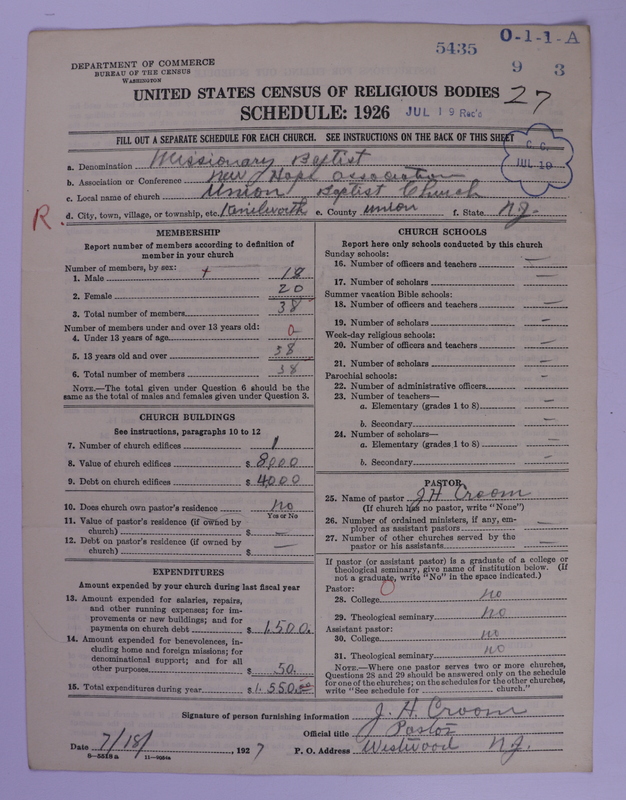 5435
O-1-1-A
9 3
DEPARTMENT OF COMMERCE
BUREAU OF THE CENSUS
WASHINGTON
UNITED STATES CENSUS OF RELIGIOUS BODIES
27
SCHEDULE: 1926
JUL 19 Rec'd
FILL OUT A SEPARATE SCHEDULE FOR EACH CHURCH. SEE INSTRUCTIONS ON THE BACK OF THIS SHEET
C. C.
JUL 19
a. Denomination Missionary Baptist
b. Association or Conference New Hope Association
c. Local name of church Union Baptist Church
R. d. City, town, village, or township, etc. Kenilworth e. County Union f. State N.J.
MEMBERSHIP
Report number of members according to definition of
member in your church
Number of members, by sex:
1. Male 18
2. Female 20
3. Total number of members 38
Number of members under and over 13 years old:
4. Under 13 years of age 0
5. 13 years old and over 38
6. Total number of members 38
NOTE.—The total given under Question 6 should be the
same as the total of males and females given under Question 3.
CHURCH BUILDINGS
See instructions, paragraphs 10 to 12
7. Number of church edifices 1
8. Value of church edifices $ 8000
9. Debt on church edifices $ 4000
10. Does church own pastor's residence No
Yes or No
11. Value of pastor's residence (if owned by
church) $ —
12. Debt on pastor's residence (if owned by
church) $ —
EXPENDITURES
Amount expended by your church during last fiscal year
13. Amount expended for salaries, repairs,
and other running expenses; for im-
provements or new buildings; and for
payments on church debt $ 1,500.
14. Amount expended for benevolences, in-
cluding home and foreign missions; for
denominational support; and for all
other purposes $ 50.
15. Total expenditures during year $ 1.550.00
CHURCH SCHOOLS
Report here only schools conducted by this church
Sunday schools:
16. Number of officers and teachers —
17. Number of scholars —
Summer vacation Bible schools:
18. Number of officers and teachers —
19. Number of scholars —
Week-day religious schools:
20. Number of officers and teachers —
21. Number of scholars —
Parochial schools:
22. Number of administrative officers —
23. Number of teachers—
a. Elementary (grades 1 to 8) —
b. Secondary —
24. Number of scholars—
a. Elementary (grades 1 to 8) —
b. Secondary —
PASTOR
25. Name of pastor J H Croom
(If church has no pastor, write "None")
26. Number of ordained ministers, if any, em-
ployed as assistant pastors —
27. Number of other churches served by the
pastor or his assistants —
If pastor (or assistant pastor) is a graduate of a college or
theological seminary, give name of institution below. (If
not a graduate, write "No" in the space indicated.)
Pastor: 0
28. College no
29. Theological seminary no
Assistant pastor:
30. College no
31. Theological seminary no
NOTE.—Where one pastor serves two or more churches,
Questions 28 and 29 should be answered only on the schedule
for one of the churches; on the schedules for the other churches,
write "See schedule for church."
Signature of person furnishing information J. H. Croom
Official title Pastor
Date 7/18/, 1927 P. O. Address Westwood N.J.
8-5518a 11-9054a